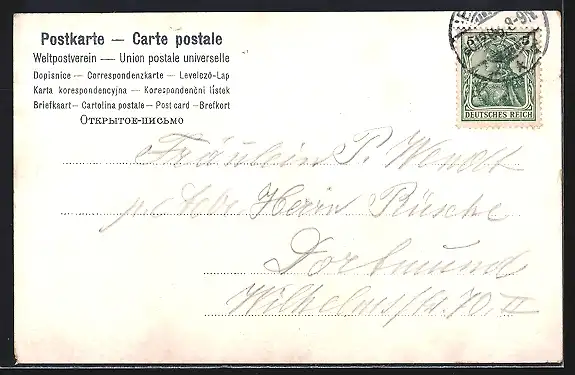 Postkarte — Carte postale
Weltpostverein — Union postale universelle
Dopisnice — Correspondenzkarte — Levelező-Lap
Karta korespondencyjna — Korespondenční lístek
Briefkaart — Cartolina postale — Post card — Brefkort
Открытое-письмо
5 5
8-9N
DEUTSCHES REICH
Fräulein P. Wendt
Herrn Rüsche
Dortmund
Wilhelmstr. 70. II